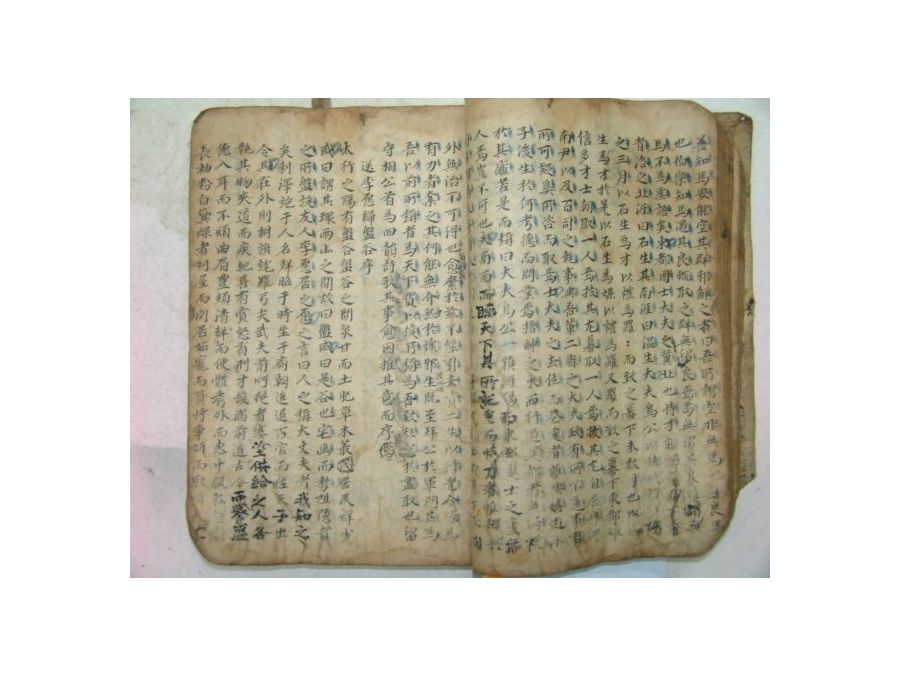 善知馬安能空其群邪解之者曰吾所謂空非無馬也無良馬
也伯樂知馬遇其良輒取之群無留良焉苟無
馬不爲虛語矣東都固士大夫之冀北也恃才能
者洛之北涯曰石生其南涯曰溫生大夫烏公以鈇鉞鎮河陽
之三月以石生爲才以禮爲羅〻而致之幕下未數月也以溫
生爲才於是以石生爲媒以禮爲羅又羅而致之幕下東都雖
信多才士朝取一人焉拔其尤暮取一人焉拔其尤自居守河
南尹以及百司之執事與吾輩二縣之大夫政有所不通事有
所可疑奚所咨而處焉士大夫之去位而巷處者誰與嬉遊小
子後生於何考德而問業焉搢紳之東西行過是都者無所
於其廬若是而稱曰大夫烏公一鎮河陽而東都處士之廬
人焉豈不可也夫南面而聽天下其所託重而恃力者惟相
外無治不可得也愈縻於茲不能引去資二生以待老今皆爲
有力者奪之其何能無介然於懷邪生旣至拜公於軍門其爲
吾以前所稱者爲天下賀以後所稱爲吾致私怨於盡取也留
守相公首爲四韻詩歌其事愈因推其意而序焉
送李愿歸盤谷序
太行之陽有盤谷盤谷之間泉甘而土肥草木叢茂居民鮮少
或曰謂其環兩山之間故曰盤或曰是谷也宅幽而勢阻隱者
之所盤旋友人李愿居之愿之言曰人之稱大丈夫者我知之
矣利澤施于人名昭于時坐于廟朝進退百官而佐天子出
令其在外則樹旗旄羅弓矢武夫前呵從者塞塗供給之人各
執其物夾道而疾馳喜有賞怒有刑才俊滿前道古今而譽盛
德入耳而不煩曲眉豐頰清聲而便體秀外而惠中
長袖粉白黛綠者列屋而閒居妬寵而負恃爭姸而取